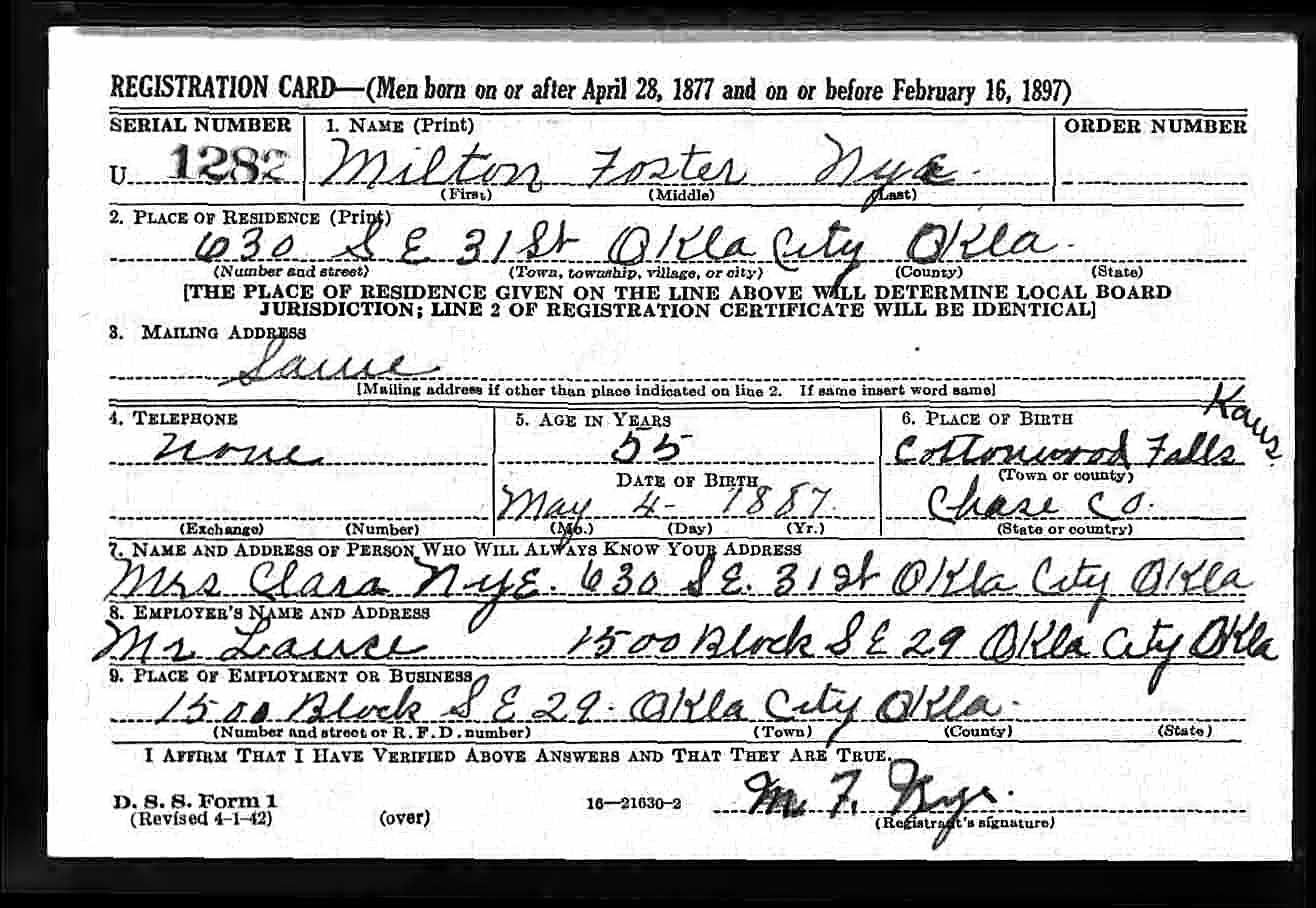 REGISTRATION CARD—(Men born on or after April 28, 1877 and on or before February 16, 1897)
SERIAL NUMBER 1. NAME (Print) ORDER NUMBER
U 1282 Milton Foster Nye
(First) (Middle) (Last)
2. PLACE OF RESIDENCE (Print)
630 S E 31 St Okla City Okla.
(Number and street) (Town, township, village, or city) (County) (State)
[THE PLACE OF RESIDENCE GIVEN ON THE LINE ABOVE WILL DETERMINE LOCAL BOARD
JURISDICTION; LINE 2 OF REGISTRATION CERTIFICATE WILL BE IDENTICAL]
3. MAILING ADDRESS
Same
[Mailing address if other than place indicated on line 2. If same insert word same]
4. TELEPHONE 5. AGE IN YEARS 6. PLACE OF BIRTH
none 55 Cottonwood Falls Kans.
DATE OF BIRTH (Town or county)
May 4 - 1887. Chase Co.
(Exchange) (Number) (Mo.) (Day) (Yr.) (State or country)
7. NAME AND ADDRESS OF PERSON WHO WILL ALWAYS KNOW YOUR ADDRESS
Mrs Clara Nye. 630 S E. 31 St Okla City Okla
8. EMPLOYER'S NAME AND ADDRESS
Mr 1500 Block S E 29 Okla City Okla
9. PLACE OF EMPLOYMENT OR BUSINESS
1500 Block S E 29. Okla City Okla.
(Number and street or R. F. D. number) (Town) (County) (State)
I AFFIRM THAT I HAVE VERIFIED ABOVE ANSWERS AND THAT THEY ARE TRUE.
D. S. S. Form 1
(Revised 4-1-42) (over) 16—21630-2 M. F. Nye.
(Registrant's signature)